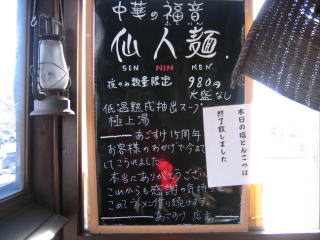 中華の福音
仙人麺
SEN NIN MEN
夜のみ数量限定 980円
大盛なし
低温熟成抽出スープ
極上湯
あごすけ15周年
お客様のおかげで今まで
してこられました
本当にありがとうござい
これからも感謝の気持ち
こめてラーメン作り続けます
あごすけ 店主
本日の塩とんこつは
終了致しました